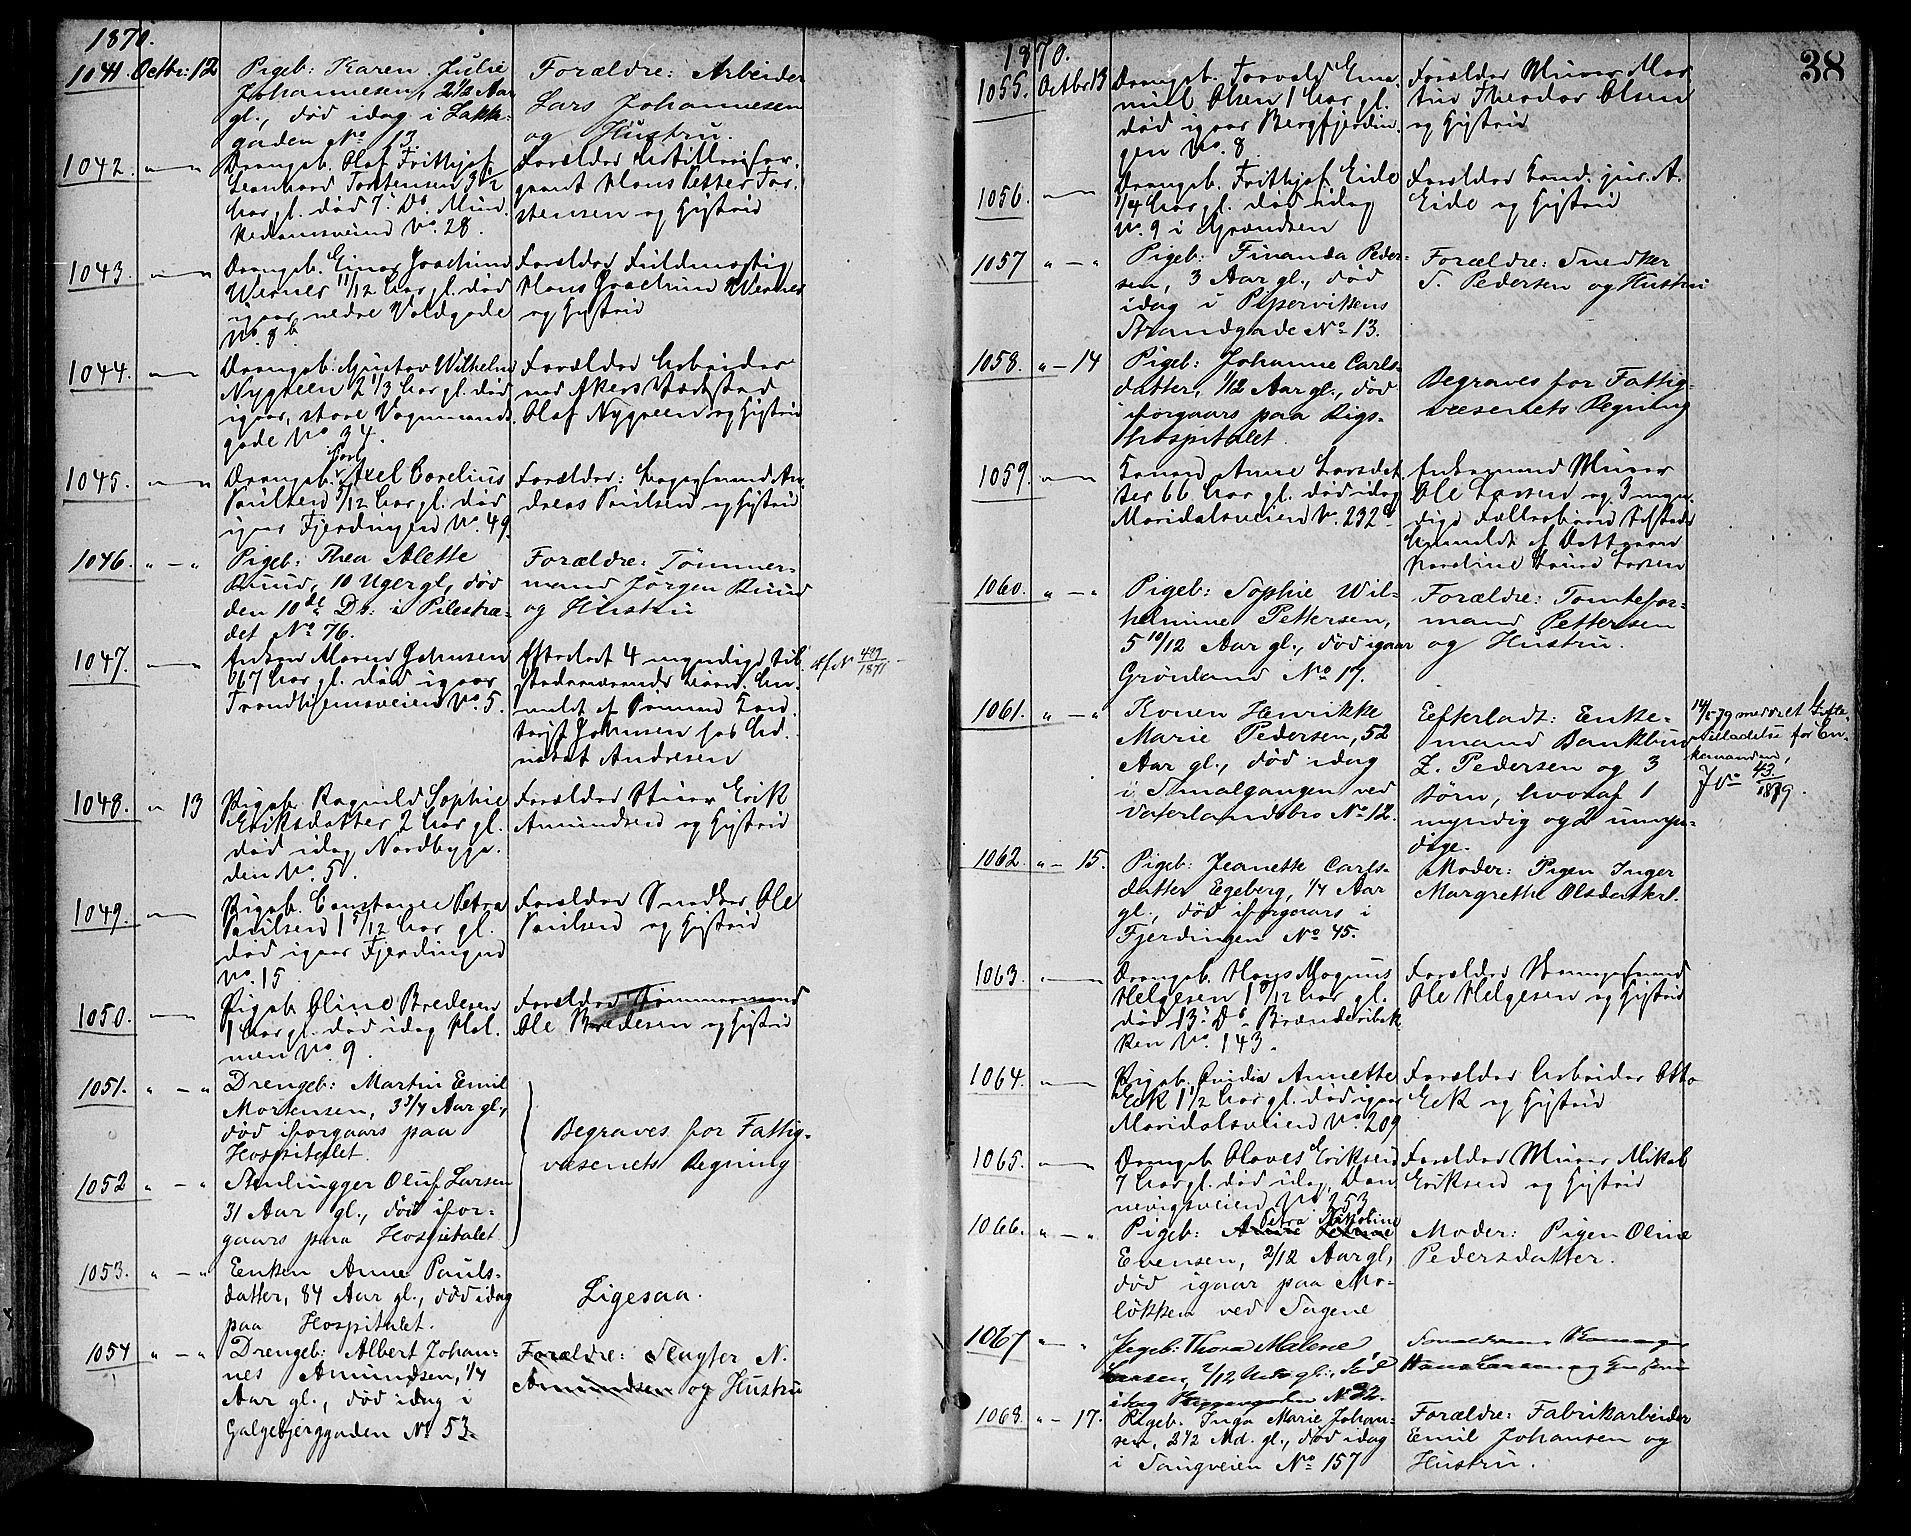 1870.
1041. Octbr: 12
Pigeb: Karen Julie
Johannesen, 2 1/2 Aar
gl., død idag i Lakke-
gaden No 13.
Forældre: Arbeider
Lars Johannesen
og Hustru.
1042. " — "
Drengeb. Olaf Frithjof
Leonhard Torstensen 3 1/2
Aar gl. død 7. Ds. Mun-
kedamsveien No. 28.
Forældre Artillerisер-
geant Hans Petter Tor-
stensen og Hustru
1043. " — "
Drengeb. Einar Joachim
Werner 11/12 Aar gl. død
igaar nedre Voldgade
No. 8 b
Forældre Fuldmægtig
Hans Joachim Werner
og Hustru
1044. " — "
Drengeb. Gustav Wilhelm
Nygreen 2 1/3 Aar gl. død
igaar, store Vognmands-
gade No. 34.
Forældre Arbeider
ved Akers Værksted
Olaf Nygreen og Hustru
1045. " — "
Drengeb. Carl Axel Cornelius
Paulsen 5/12 Aar gl. død
igaar Fjerdingen No. 49.
Forældre: An-
dreas Paulsen og Hustru
1046. " — "
Pigeb: Thea Alette
Ruud, 10 Uger gl., død
den 10de Ds: i Pilestræ-
det No 76.
Forældre: Tømmer-
mand Jørgen Ruud
og Hustru
1047. " — "
Enken Maren Johnsen
67 Aar gl. død igaar
Trondhjemsveien No. 5.
Efterladt 4 myndige til
stedeværende Børn. An-
meldt af
Johnsen hos Ad-
vokat Andresen
Af. N 497/1871
1048. " 13
Pigeb. Ragnild Sophie
Eriksdatter 2 Aar gl.
død idag Nordbyga-
den No. 5.
Forældre Murer Erik
Amundsen og Hustru
1049. " — "
Pigeb. Constance Petra
Paulsen 1 5/12 Aar gl.
død igaar Fjerdingen
No. 15
Forældre Snedker Ole
Paulsen og Hustru
1050. " — "
Pigeb. Oline Bredesen
1 Aar gl. død idag Hol-
men No. 9.
Forældre Tømmermand
Ole Bredesen og Hustru
1051. " — "
Drengeb: Martin Emil
Mortensen, 3 3/4 Aar gl.,
død iforgaars paa
Hospitalet.
Begraves for Fattig-
væsenets Regning
1052 " — "
Smaligger Oluf Larsen
31 Aar gl., død ifor-
gaars paa Hospitalet
1053. " — "
Enken Anne Pauls-
datter, 84 Aar gl., død idag
paa Hospitalet.
Ligesaa.
1054 " — "
Drengeb: Albert Johan-
nes Amundsen, 1/4
Aar gl., død idag i
Galgebjerggaden No 53.
Forældre: Slagter N.
Amundsen og Hustru
38
1870.
1055. Octbr 13
Drengeb. Torvald Ema-
nuel Olsen 1 Aar gl.
død igaar Bergfjerdin-
gen No. 8
Forældre Murer Mar-
tin Theodor Olsen
og Hustru
1056. " — "
Drengeb. Frithjof Eide
1/4 Aar gl. død idag
No. 9 i Grændsen
Forældre Cand. jur. A.
Eide og Hustru
1057 " — "
Pigeb: Finanda Peder-
sen, 3 Aar gl., død
idag i Pipervikens
Strandgade No 13.
Forældre: Snedker
S. Pedersen og Hustru
1058. " — 14
Pigeb: Johanne Carls-
datter, 1/12 Aar gl., død
iforgaars paa Rigs-
hospitalet.
Begraves for Fattig-
væsenets Regning
1059. " — "
Konen Anne Larsdat-
ter 66 Aar gl. død idag
Maridalsveien No. 232 c
Enkemand Murer
Ole Larsen og 3 myn-
dige Fællesbørn tilstede
Anmeldt af Datteren
Karoline Larsen
1060. " — "
Pigeb: Sophie Wil-
helmine Pettersen,
5 10/12 Aar gl., død igaar
Grønland No 17.
Forældre: Tomtefor-
mand Pettersen
og Hustru.
1061. " — "
Konen Henrikke
Marie Pedersen, 52
Aar gl., død idag
i Smalgangen ved
Vaterlandsbro No 12.
Eefterladt: Enke-
mand Bankbud
L. Pedersen og 3
Børn, hvoraf 1
myndig og 2 umyn-
dige.
14/5 79 meddelt Gifte-
tilladelse for En-
kemanden,
J No 43/1879.
1062. " — 15.
Pigeb: Jeanette Carls-
datter Egeberg, 1/4 Aar
gl., død iforgaars i
Fjerdingen No 45.
Moder: Pigen Inger
Margrethe Olsdatter.
1063. " — "
Drengeb. Hans Magnus
Helgesen 1 8/12 Aar gl.
død 13. Ds. Brænderibak-
ken No. 143.
Forældre
Ole Helgesen og Hustru
1064. " — "
Pigeb. Annette
Eck 1 1/2 Aar gl. død igaar
Maridalsveien No. 209
Forældre Arbeider Otto
Eck og Hustru
1065. " — "
Drengeb. Olaves Eriksen
7 Aar gl. død idag, Dan-
nevigsveien No. 253
Forældre Murer Mikal
Eriksen og Hustru
1066. " — "
Petra Nikoline
Pigeb:
Evensen, 2/12 Aar gl,
død igaar paa Mo-
løkken ved Sagene
Moder: Pigen Oline
Pedersdatter.
1067 " — "
Pigeb: Thora Malene
Larsen, 2/12 Aar gl., død
idag No 32.
Hans Larsen og Hustru
1068. " — 17.
Pigeb. Inga Marie Johan-
sen, 2 1/2 Md. gl., død idag
i Sangveien No 157
Forældre: Fabrikarbeider
Emil Johansen og
Hustru.